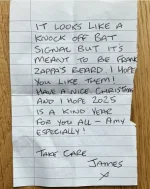 IT LOOKS LIKE A
KNOCK OFF BAT
SIGNAL BUT IT'S
MEANT TO BE FRANK
ZAPPA'S BEARD. I HOPE
YOU LIKE THEM!
HAVE A NICE CHRISTMAS
AND I HOPE 2025
IS A KIND YEAR
FOR YOU ALL - AMY
ESPECIALLY!
TAKE CARE
JAMES
X